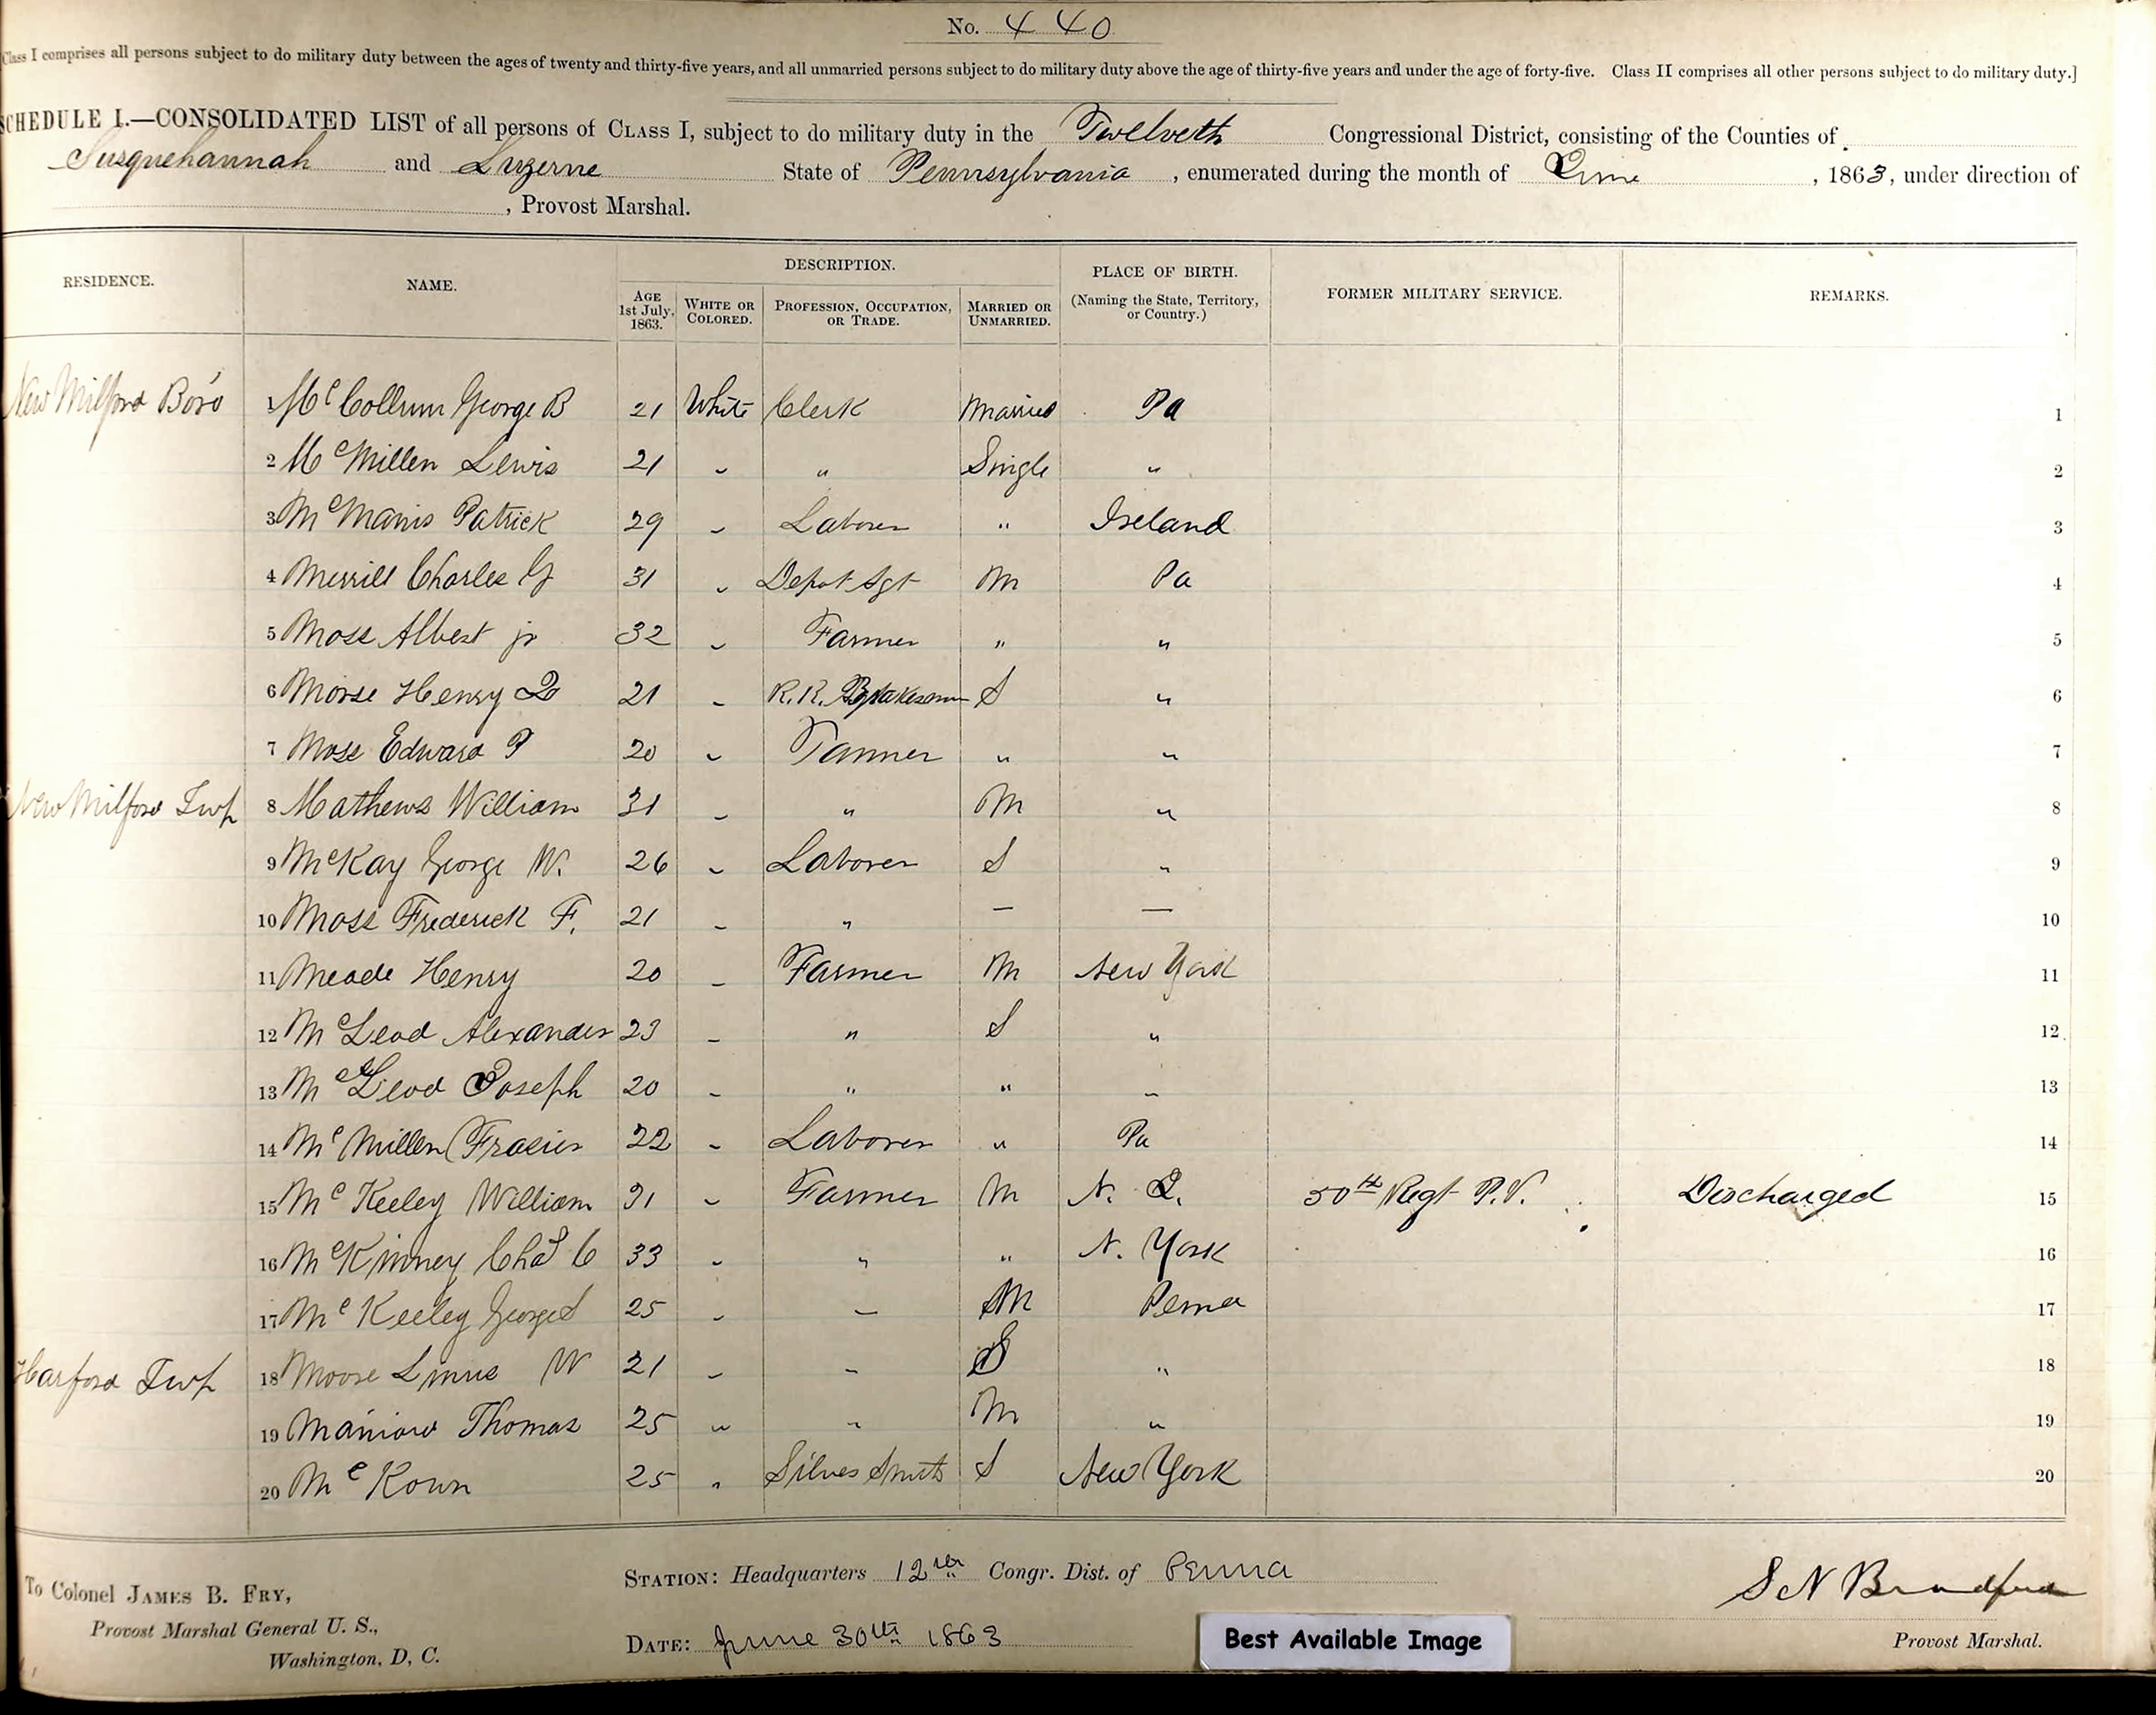 No. 440
Class I comprises all persons subject to do military duty between the ages of twenty and thirty-five years, and all unmarried persons subject to do military duty above the age of thirty-five years and under the age of forty-five. Class II comprises all other persons subject to do military duty.]
SCHEDULE I.—CONSOLIDATED LIST of all persons of CLASS I, subject to do military duty in the Twelveth Congressional District, consisting of the Counties of
Susquehannah and Luzerne State of Pennsylvania, enumerated during the month of June, 1863, under direction of
, Provost Marshal.
RESIDENCE. NAME. DESCRIPTION. PLACE OF BIRTH. FORMER MILITARY SERVICE. REMARKS.
AGE 1st July, 1863. WHITE OR COLORED. PROFESSION, OCCUPATION, OR TRADE. MARRIED OR UNMARRIED. (Naming the State, Territory, or Country.)
New Milford Boro 1 McCollum George B 21 White Clerk Married Pa 1
2 McMillen Lewis 21 " " Single " 2
3 McManis Patrick 29 " Laborer " Ireland 3
4 Merrill Charles G 31 " Depot Agt M Pa 4
5 Moss Albert jr 32 " Farmer " " 5
6 Morse Henry 21 " R.R. Brakesman S " 6
7 Moss Edward P 20 " Tanner " " 7
New Milford Twp 8 Mathews William 31 " " M " 8
9 McKay George W. 26 " Laborer S " 9
10 Moss Frederick F. 21 " " — — 10
11 Meade Henry 20 " Farmer M New York 11
12 McLeod Alexander 23 " " S " 12
13 McLeod Joseph 20 " " " " 13
14 McMillen Frasier 22 " Laborer " Pa 14
15 McKeeley William 31 " Farmer M N. J. 50th Regt P.V. Discharged 15
16 McKinney Chas C 33 " " " N. York 16
17 McKeeley George S 25 " — M Penna 17
Harford Twp 18 Moore Linus W 21 " " S " 18
19 Thomas 25 " " M " 19
20 McKown 25 " Silver Smith S New York 20
To Colonel JAMES B. FRY,
Provost Marshal General U. S.,
Washington, D, C.
STATION: Headquarters 12th Congr. Dist. of Penna
DATE: June 30th 1863
S N Bradford
Provost Marshal.
Best Available Image